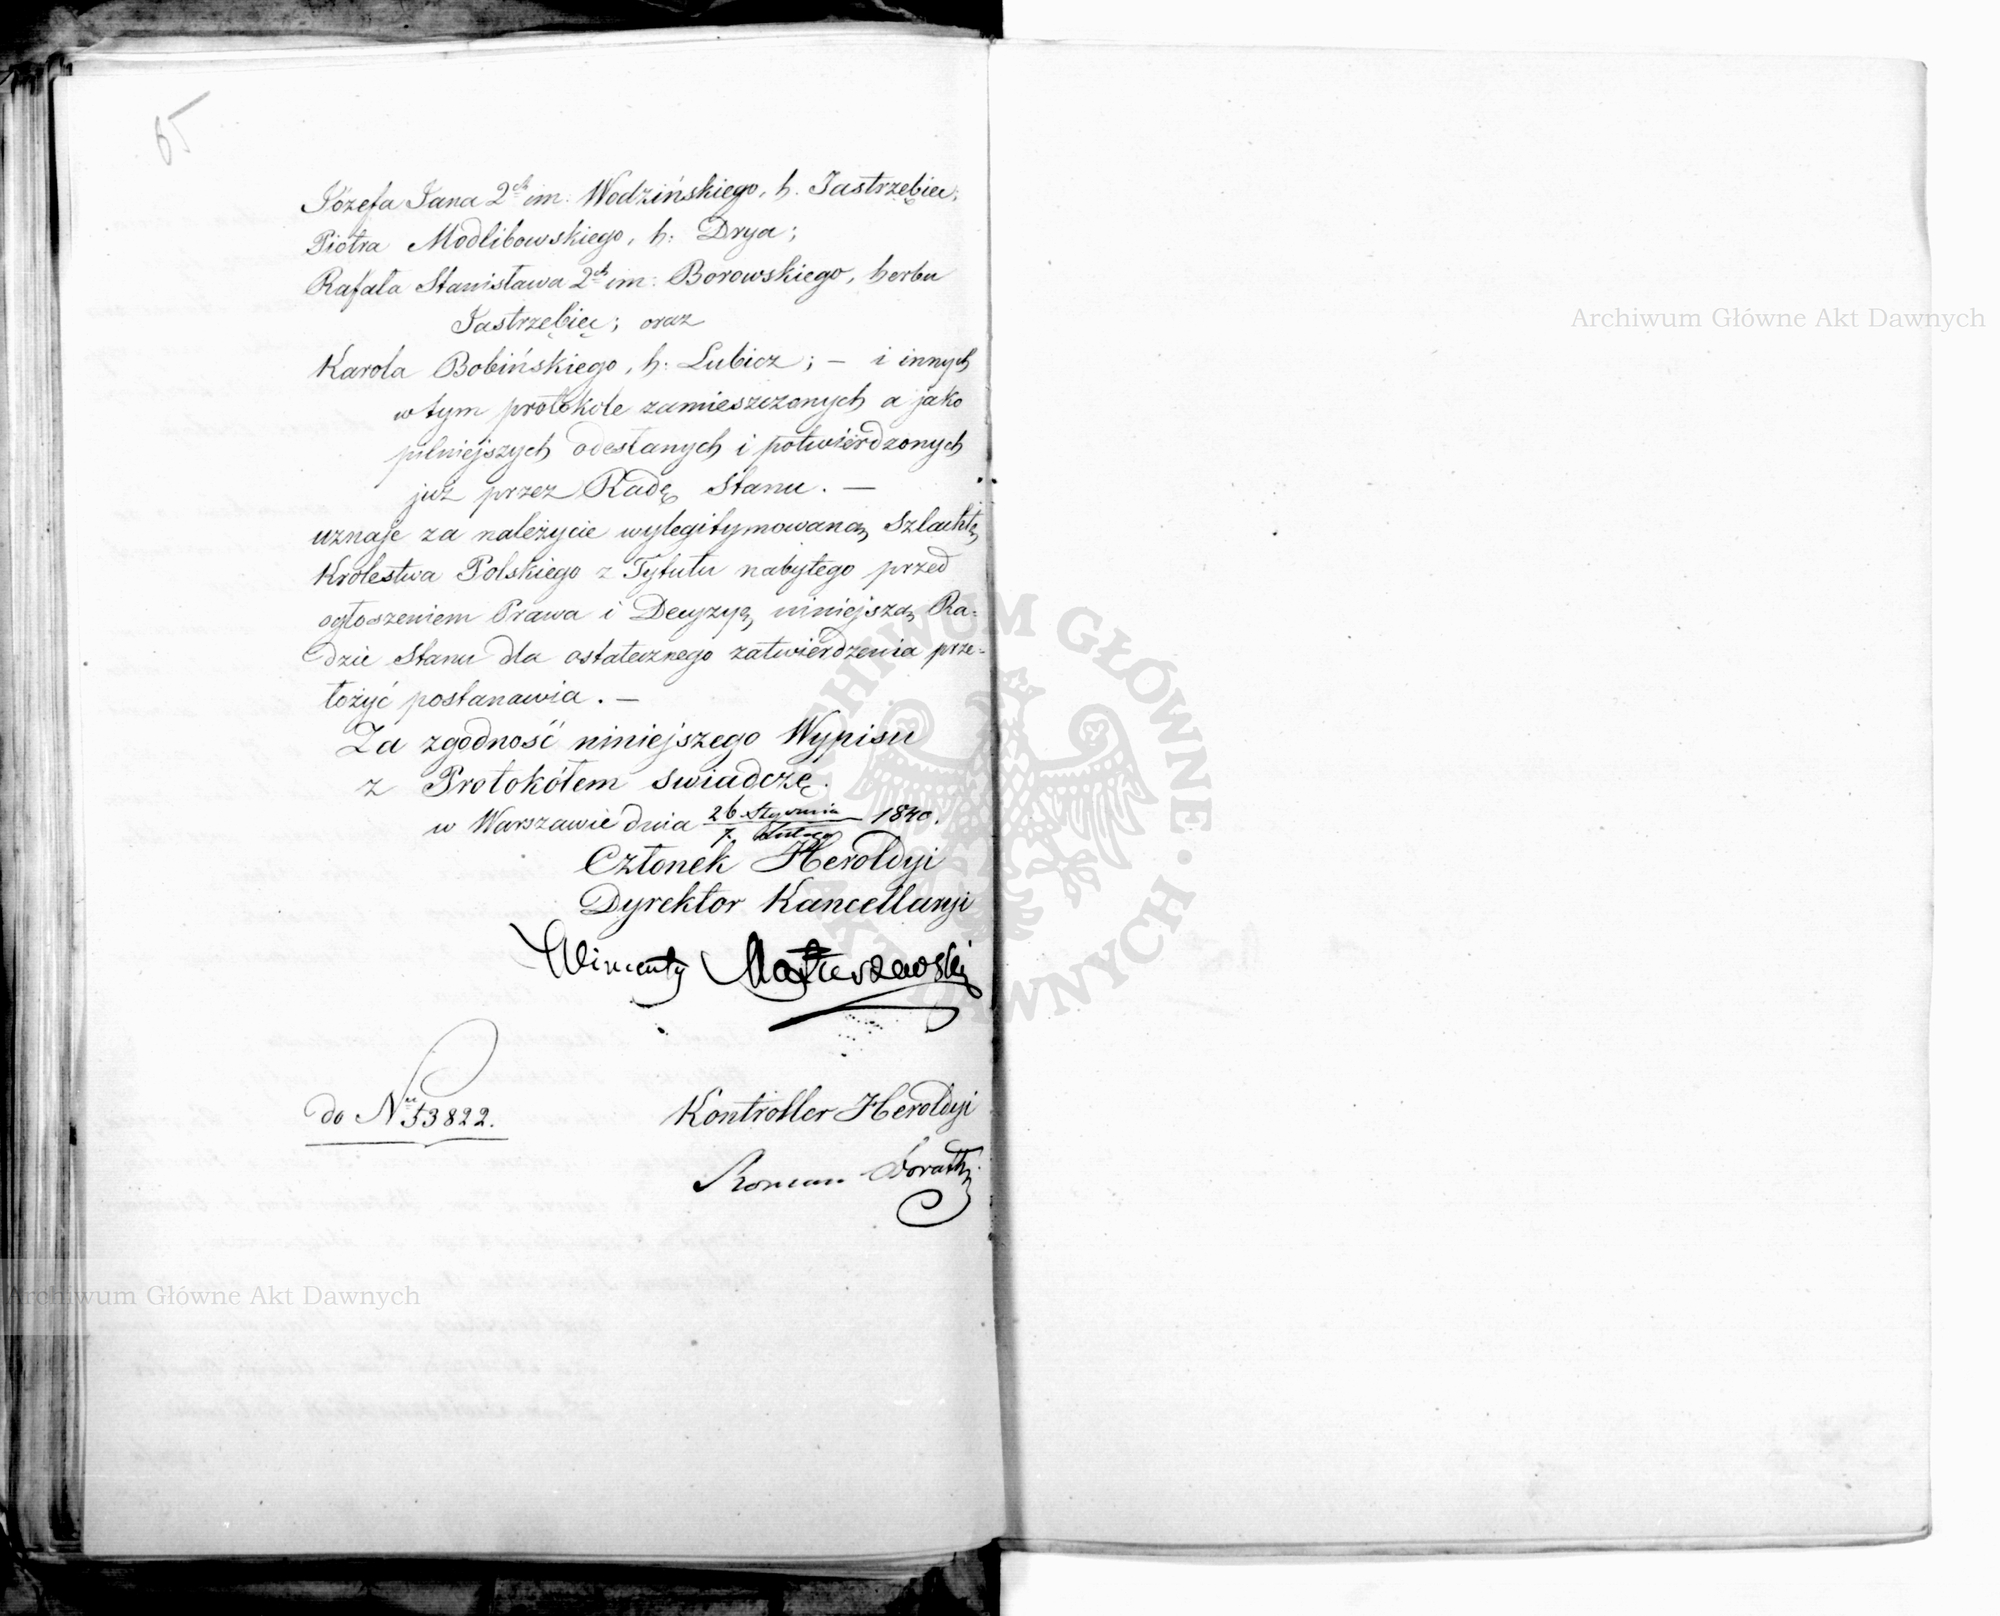 65
Józefa Jana 2ch im: Wodzińskiego, h. Jastrzębiec;
Piotra Modlibowskiego, h: Drya;
Rafała Stanisława 2ch im: Borowskiego, herbu
Jastrzębiec; oraz
Karola Bobińskiego, h: Lubicz; – i innych
w tym protokole zamieszczonych a jako
pilniejszych odesłanych i potwierdzonych
już przez Radę Stanu. —
uznaje za należycie wylegitymowaną Szlachtę
Królestwa Polskiego z Tytułu nabytego przed
ogłoszeniem Prawa i Decyzyę niniejszą Ra-
dzie Stanu dla ostatecznego zatwierdzenia prze-
łożyć postanawia. —
Za zgodność niniejszego Wypisu
z Protokółem świadczę.
w Warszawie dnia 26 Stycznia / 7. Lutego 1840.
Członek Heroldyi
Dyrektor Kancellaryi
Wincenty Matuszewski
do Nru 53822.
Kontroller Heroldyi
Roman
Archiwum Główne Akt Dawnych
Archiwum Główne Akt Dawnych
ARCHIWUM GŁÓWNE · AKT DAWNYCH ·